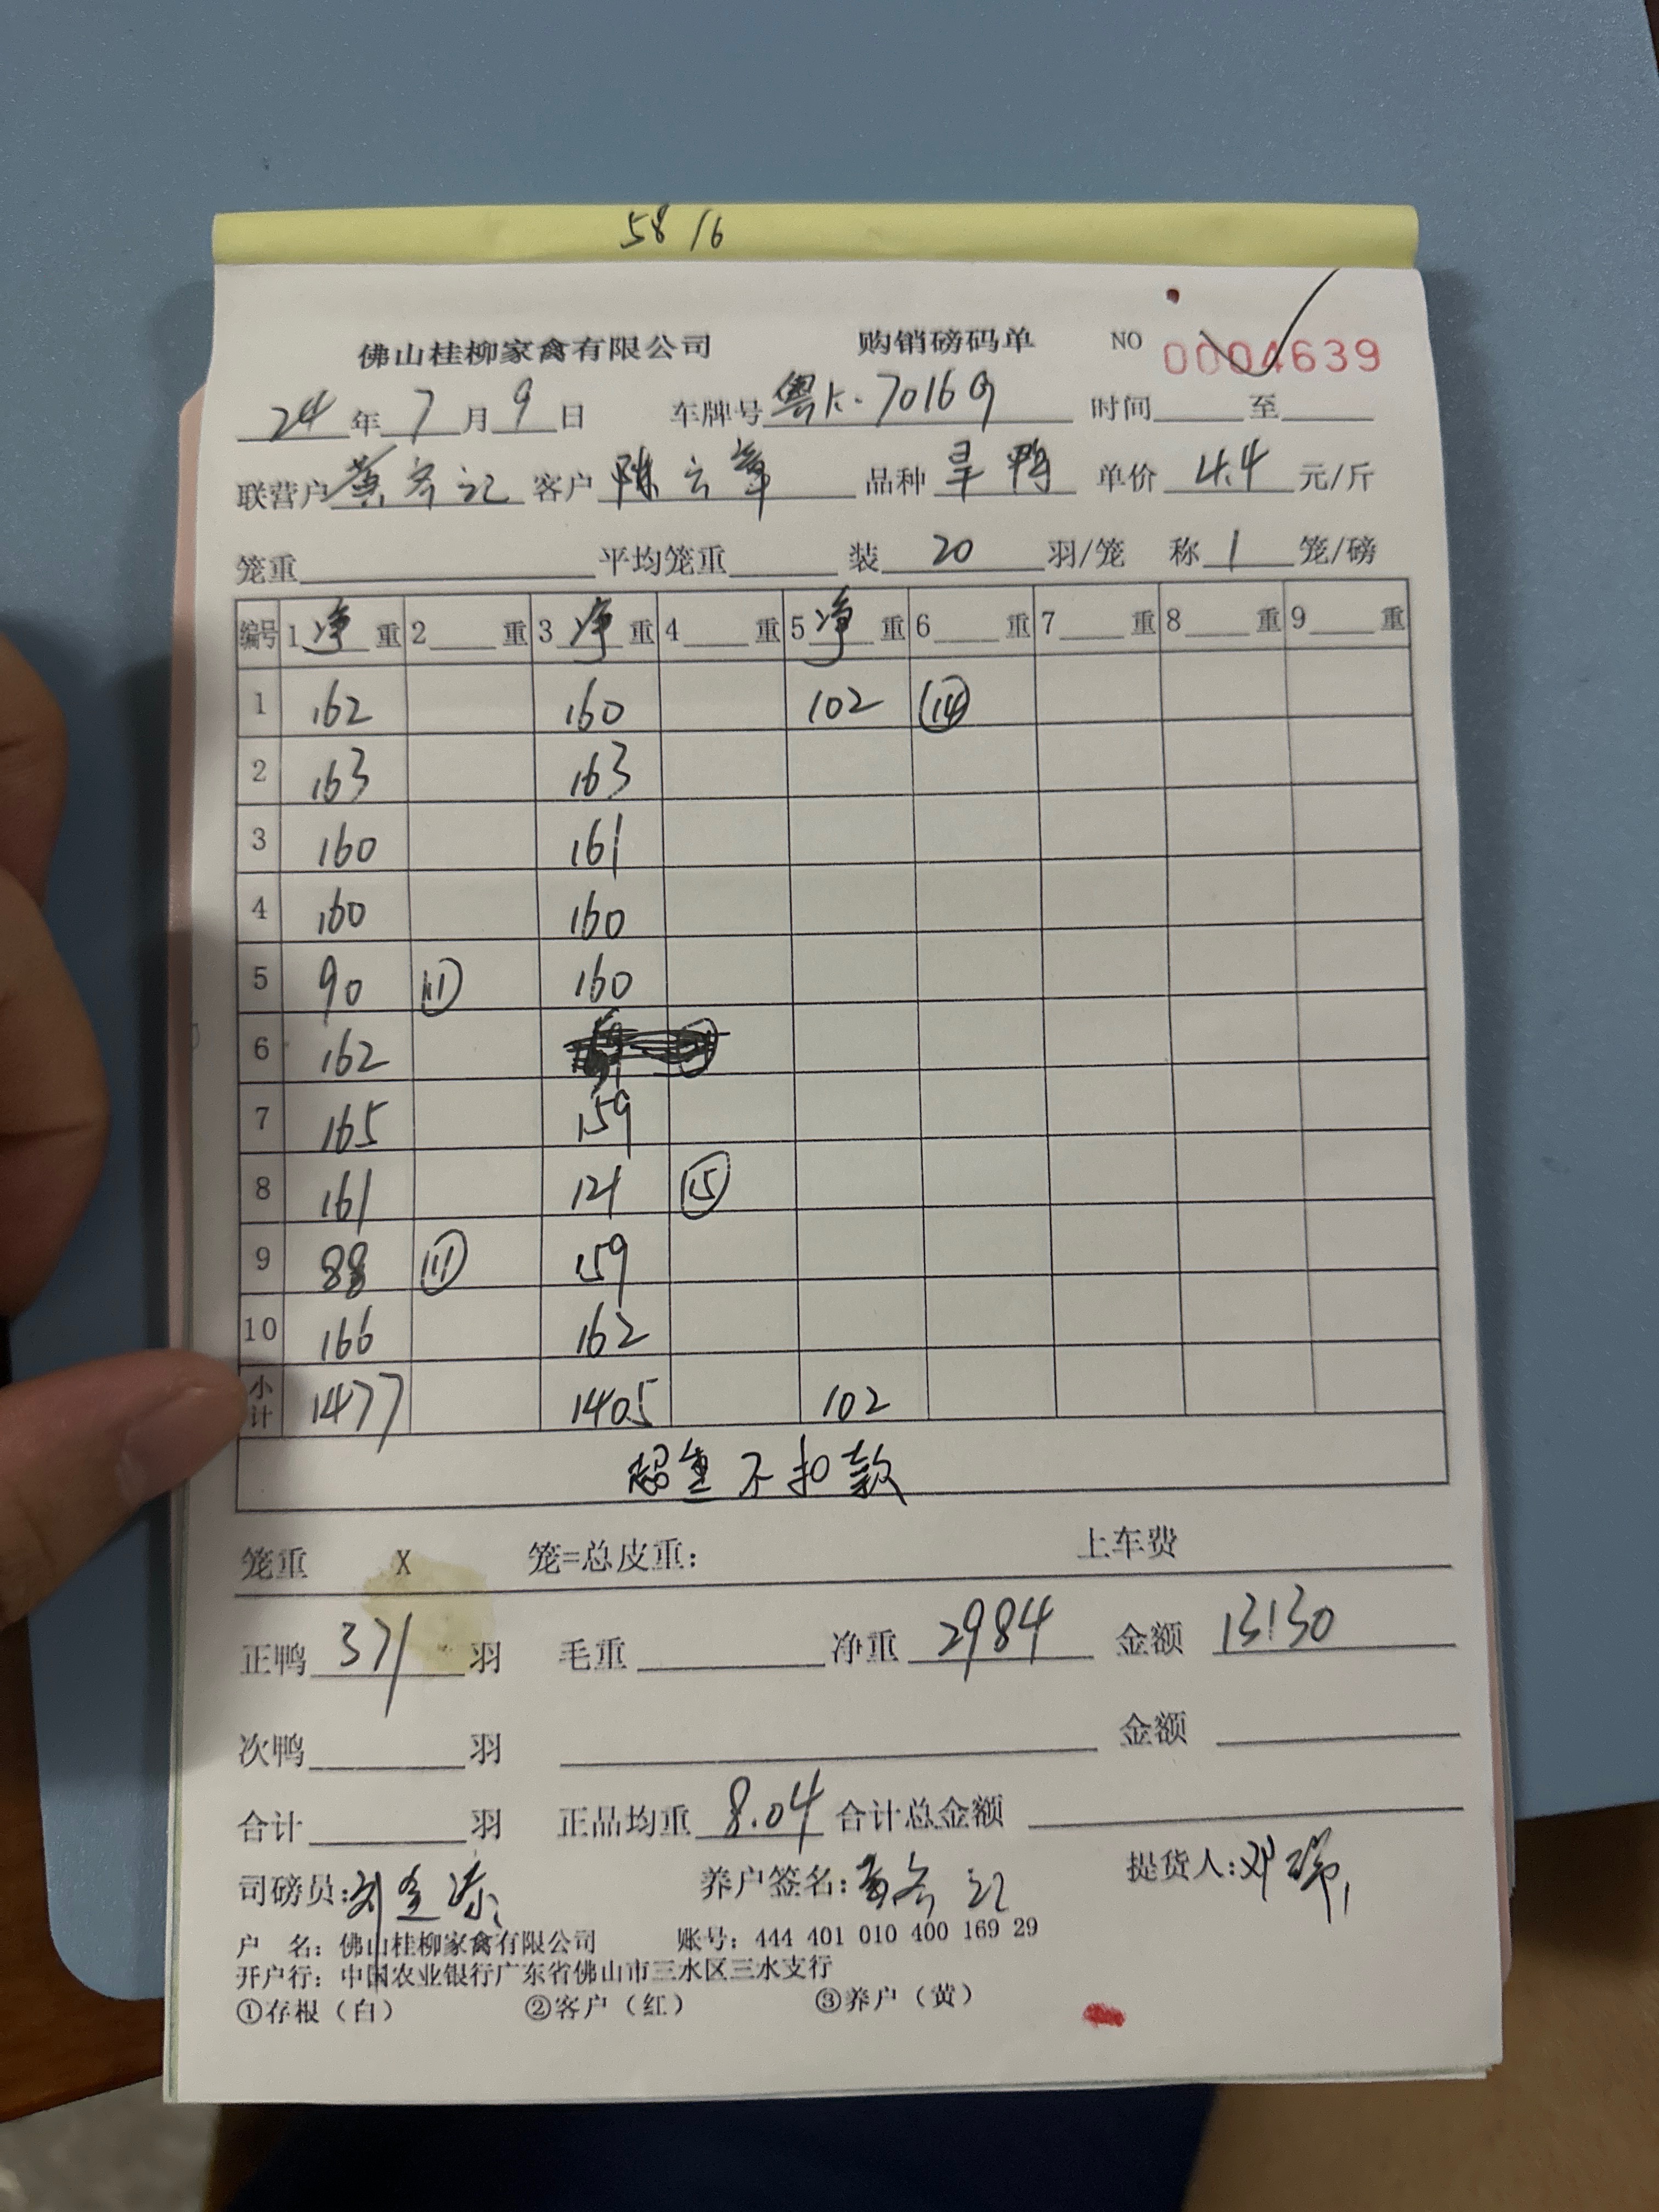 58 16
佛山桂柳家禽有限公司 购销磅码单 NO 0004639
24年7月9日 车牌号粤K·7016 时间 至
联营户黄 记 客户陈云章 品种旱鸭 单价4.4元/斤
笼重 平均笼重 装20羽/笼 称1笼/磅
编号 1净重 2 重 3净重 4 重 5净重 6 重 7 重 8 重 9 重
1 162 160 102 ⑭
2 163 163
3 160 161
4 160 160
5 90 ⑪ 160
6 162
7 165 159
8 161 121 ⑮
9 88 ⑪ 159
10 166 162
小计 1477 1405 102
超重不扣款
笼重 X 笼=总皮重: 上车费
正鸭371羽 毛重 净重2984 金额13130
次鸭 羽 金额
合计 羽 正品均重8.04 合计总金额
司磅员:刘 养户签名:黄 记 提货人:邓
户 名: 佛山桂柳家禽有限公司 账号: 444 401 010 400 169 29
开户行: 中国农业银行广东省佛山市三水区三水支行
①存根（白） ②客户（红） ③养户（黄）